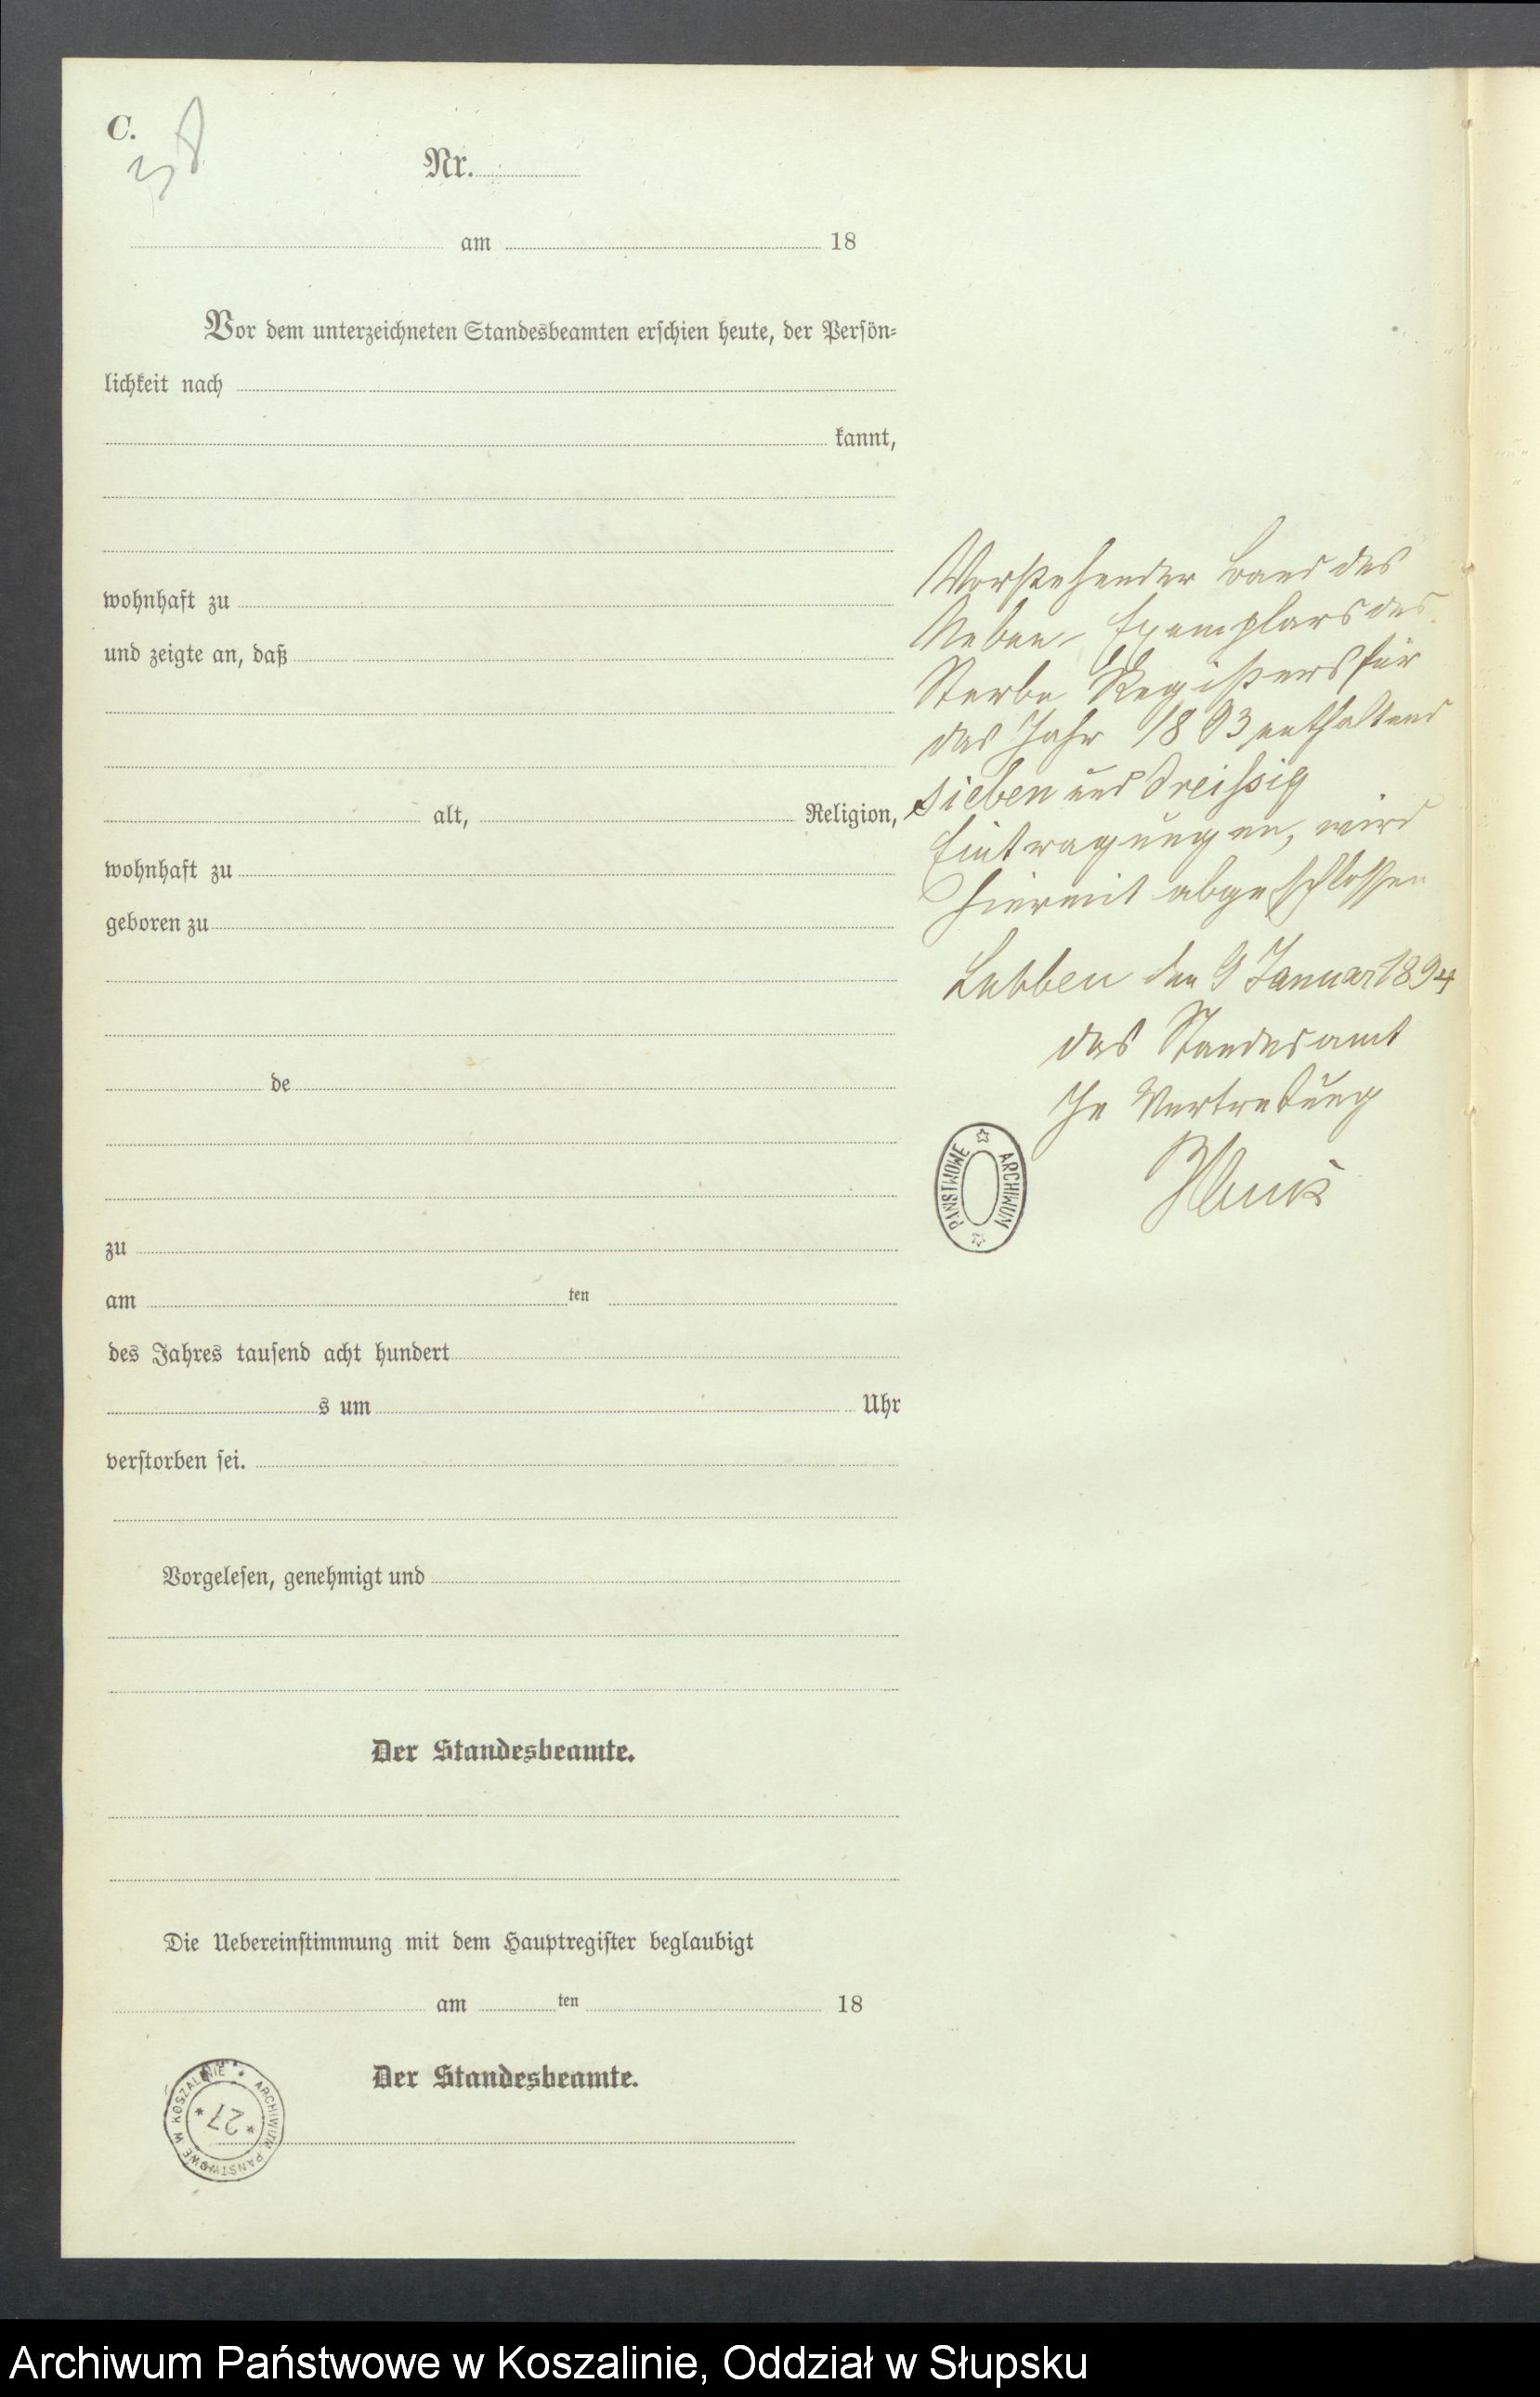 C.
38
Nr.
am 18
Vor dem unterzeichneten Standesbeamten erschien heute, der Persön-
lichkeit nach
kannt,
wohnhaft zu
und zeigte an, daß
alt, Religion,
wohnhaft zu
geboren zu
de
zu
am ten
des Jahres tausend acht hundert
s um Uhr
verstorben sei.
Vorgelesen, genehmigt und
Der Standesbeamte.
Die Uebereinstimmung mit dem Hauptregister beglaubigt
am ten 18
Der Standesbeamte.
Vorstehender Band des
Neben-Exemplars des
Sterbe Registers für
das Jahr 1893 enthaltend
sieben und dreissig
Eintragungen, wird
hiermit abgeschlossen
Lubben den 9 Januar 1894
das Standesamt
In Vertretung
ARCHIWUM PAŃSTWOWE
ARCHIWUM PAŃSTWOWE W KOSZALINIE
* 27 *
Archiwum Państwowe w Koszalinie, Oddział w Słupsku